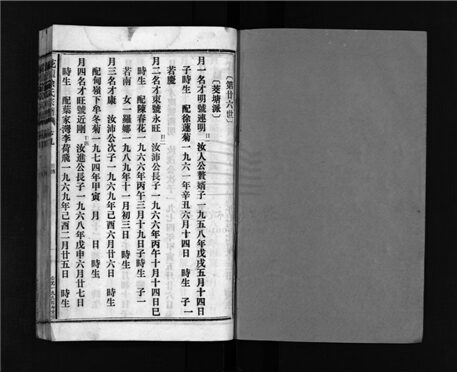 〔第廿六世〕
〔菱塘派〕
月一名才明號連明 汝人公贅婿子一九五八年戊戌五月十四日
子時生 配徐蓮菊一九六一年辛丑六月十四日 時生 子一
若慶
月二名才東號永旺 汝沛公長子一九六六年丙午十月十四日巳
時生 配陳春花一九六六年丙午三月十九日子時生 子一
若南 女一羅娜一九八九年十一月初三日 時生
月三名才康 汝沛公次子一九六九年己酉六月廿六日 時生
配甸嶺下牟冬菊一九七四年甲寅 月 日 時生
月四名才旺號近剛 汝進公長子一九六八年戊申六月廿七日
時生 配葉家灣李荷飛一九六九年己酉二月廿五日 時生